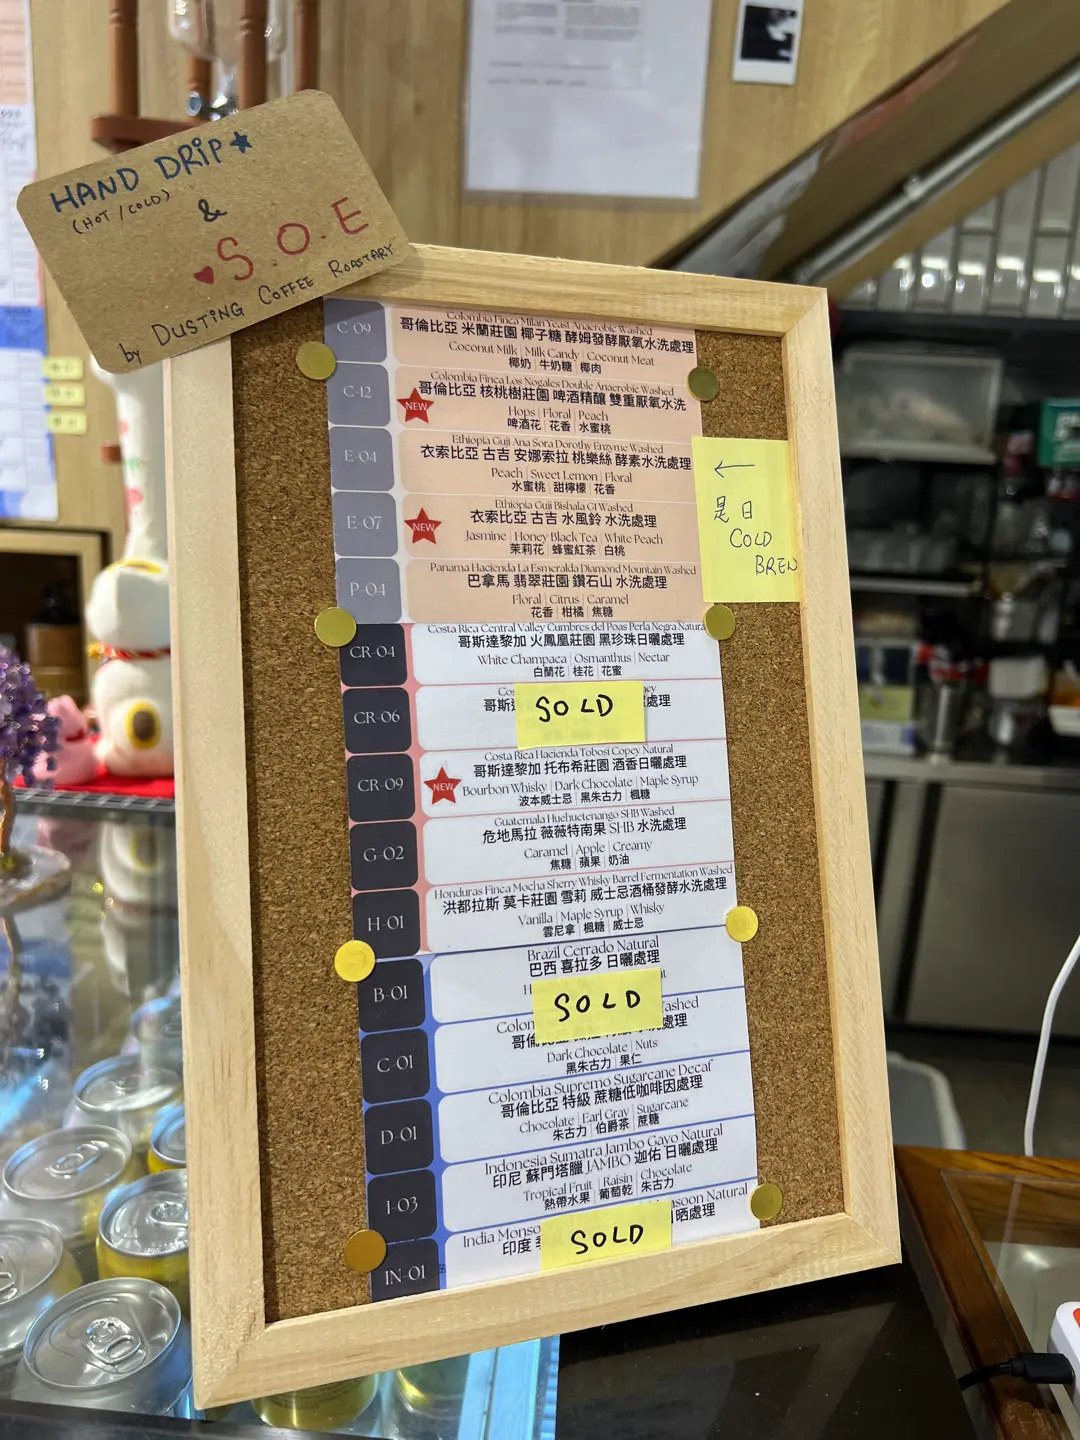 HAND DRIP
(HOT / COLD)
&
S.O.E
by DUSTING COFFEE ROASTARY
C-09
Colombia Finca Milan Yeast Anaerobic Washed
哥倫比亞 米蘭莊園 椰子糖 酵姆發酵厭氧水洗處理
Coconut Milk | Milk Candy | Coconut Meat
椰奶 | 牛奶糖 | 椰肉
C-12
NEW
Colombia Finca Los Nogales Double Anaerobic Washed
哥倫比亞 核桃樹莊園 啤酒精釀 雙重厭氧水洗
Hops | Floral | Peach
啤酒花 | 花香 | 水蜜桃
E-04
Ethiopia Guji Ana Sora Dorothy Enzyme Washed
衣索比亞 古吉 安娜索拉 桃樂絲 酵素水洗處理
Peach | Sweet Lemon | Floral
水蜜桃 | 甜檸檬 | 花香
←
是日
COLD
BREW
E-07
NEW
Ethiopia Guji Bishala G1 Washed
衣索比亞 古吉 水風鈴 水洗處理
Jasmine | Honey Black Tea | White Peach
茉莉花 | 蜂蜜紅茶 | 白桃
P-04
Panama Hacienda La Esmeralda Diamond Mountain Washed
巴拿馬 翡翠莊園 鑽石山 水洗處理
Floral | Citrus | Caramel
花香 | 柑橘 | 焦糖
CR-04
Costa Rica Central Valley Cumbres del Poas Perla Negra Natural
哥斯達黎加 火鳳凰莊園 黑珍珠日曬處理
White Champaca | Osmanthus | Nectar
白蘭花 | 桂花 | 花蜜
CR-06
哥斯 處理
SOLD
CR-09
NEW
Costa Rica Hacienda Tobosi Copey Natural
哥斯達黎加 托布希莊園 酒香日曬處理
Bourbon Whisky | Dark Chocolate | Maple Syrup
波本威士忌 | 黑朱古力 | 楓糖
G-02
Guatemala Huehuetenango SHB Washed
危地馬拉 薇薇特南果 SHB 水洗處理
Caramel | Apple | Creamy
焦糖 | 蘋果 | 奶油
H-01
Honduras Finca Mocha Sherry Whisky Barrel Fermentation Washed
洪都拉斯 莫卡莊園 雪莉 威士忌酒桶發酵水洗處理
Vanilla | Maple Syrup | Whisky
雲尼拿 | 楓糖 | 威士忌
B-01
Brazil Cerrado Natural
巴西 喜拉多 日曬處理
SOLD
C-01
Colom Washed
哥倫 處理
Dark Chocolate | Nuts
黑朱古力 | 果仁
D-01
Colombia Supremo Sugarcane Decaf
哥倫比亞 特級 蔗糖低咖啡因處理
Chocolate | Earl Gray | Sugarcane
朱古力 | 伯爵茶 | 蔗糖
I-03
Indonesia Sumatra Jambo Gayo Natural
印尼 蘇門塔臘 JAMBO 迦佑 日曬處理
Tropical Fruit | Raisin | Chocolate
熱帶水果 | 葡萄乾 | 朱古力
IN-01
India Monso nsoon Natural
印度 晒處理
SOLD